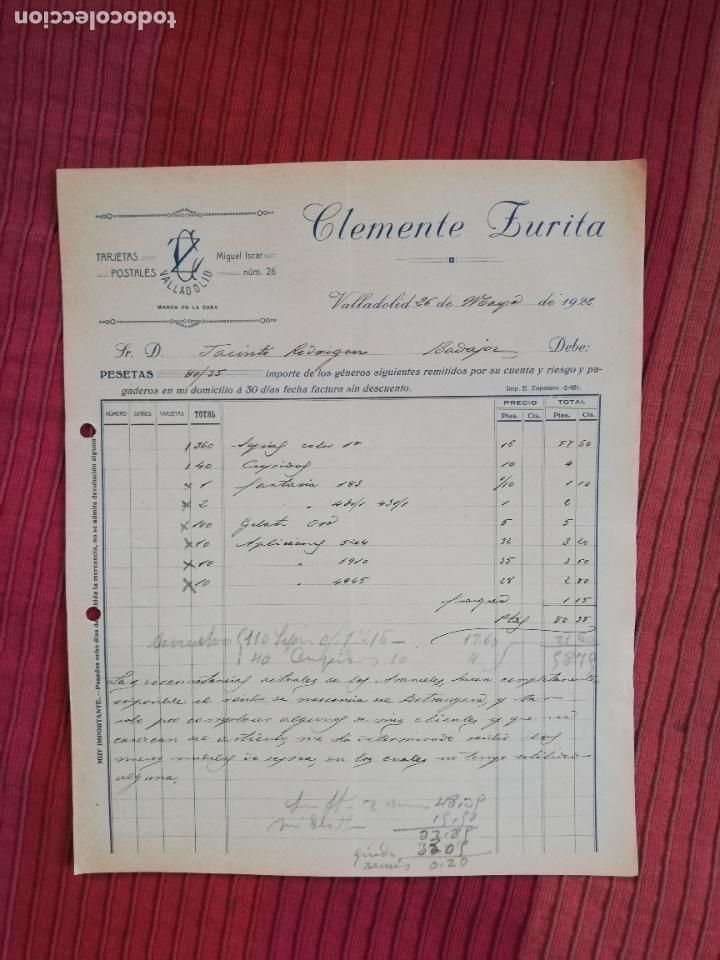 todocoleccion
Clemente Zurita
TARJETAS
POSTALES
VALLADOLID
Miguel Iscar
núm. 26
MARCA DE LA CASA
Valladolid 26 de Mayo de 1922
Sr. D. Jacinto Rodriguez Badajoz Debe:
PESETAS 80/35 importe de los géneros siguientes remitidos por su cuenta y riesgo y pa-
gaderos en mi domicilio á 30 días fecha factura sin descuento.
Imp. E. Zapatero.-2-921.
NÚMERO SERIES TARJETAS TOTAL PRECIO TOTAL
Ptas. Cts. Ptas. Cts.
360 color 1ª 16 57 60
40 Cupidos 10 4
1 fantasia 183 1/10 1 10
2 " 430/1 431/1 1 2
100 Gelat. Ord 5 5
10 Aplicaciones 5204 32 3 20
10 " 5910 35 3 50
10 " 4965 28 2 80
franqueo 1 15
Ptas 80 35
110 16 17.60 21 60
40 10 4 58 75
Las circunstancias actuales de los Aranceles hacen completamente
imposible el recibo de mercancia de Extranjero, y tan
solo por complacer algunos de mis clientes y que
carezcan de articulo, me he determinado recibir los
nuevos modelos de en los cuales no tengo utilidad
alguna.
48,39
15,50
32.89
33 09
0.20
MUY IMPORTANTE.—Pasados ocho días de bida la mercancia, no se admite devolución alguna